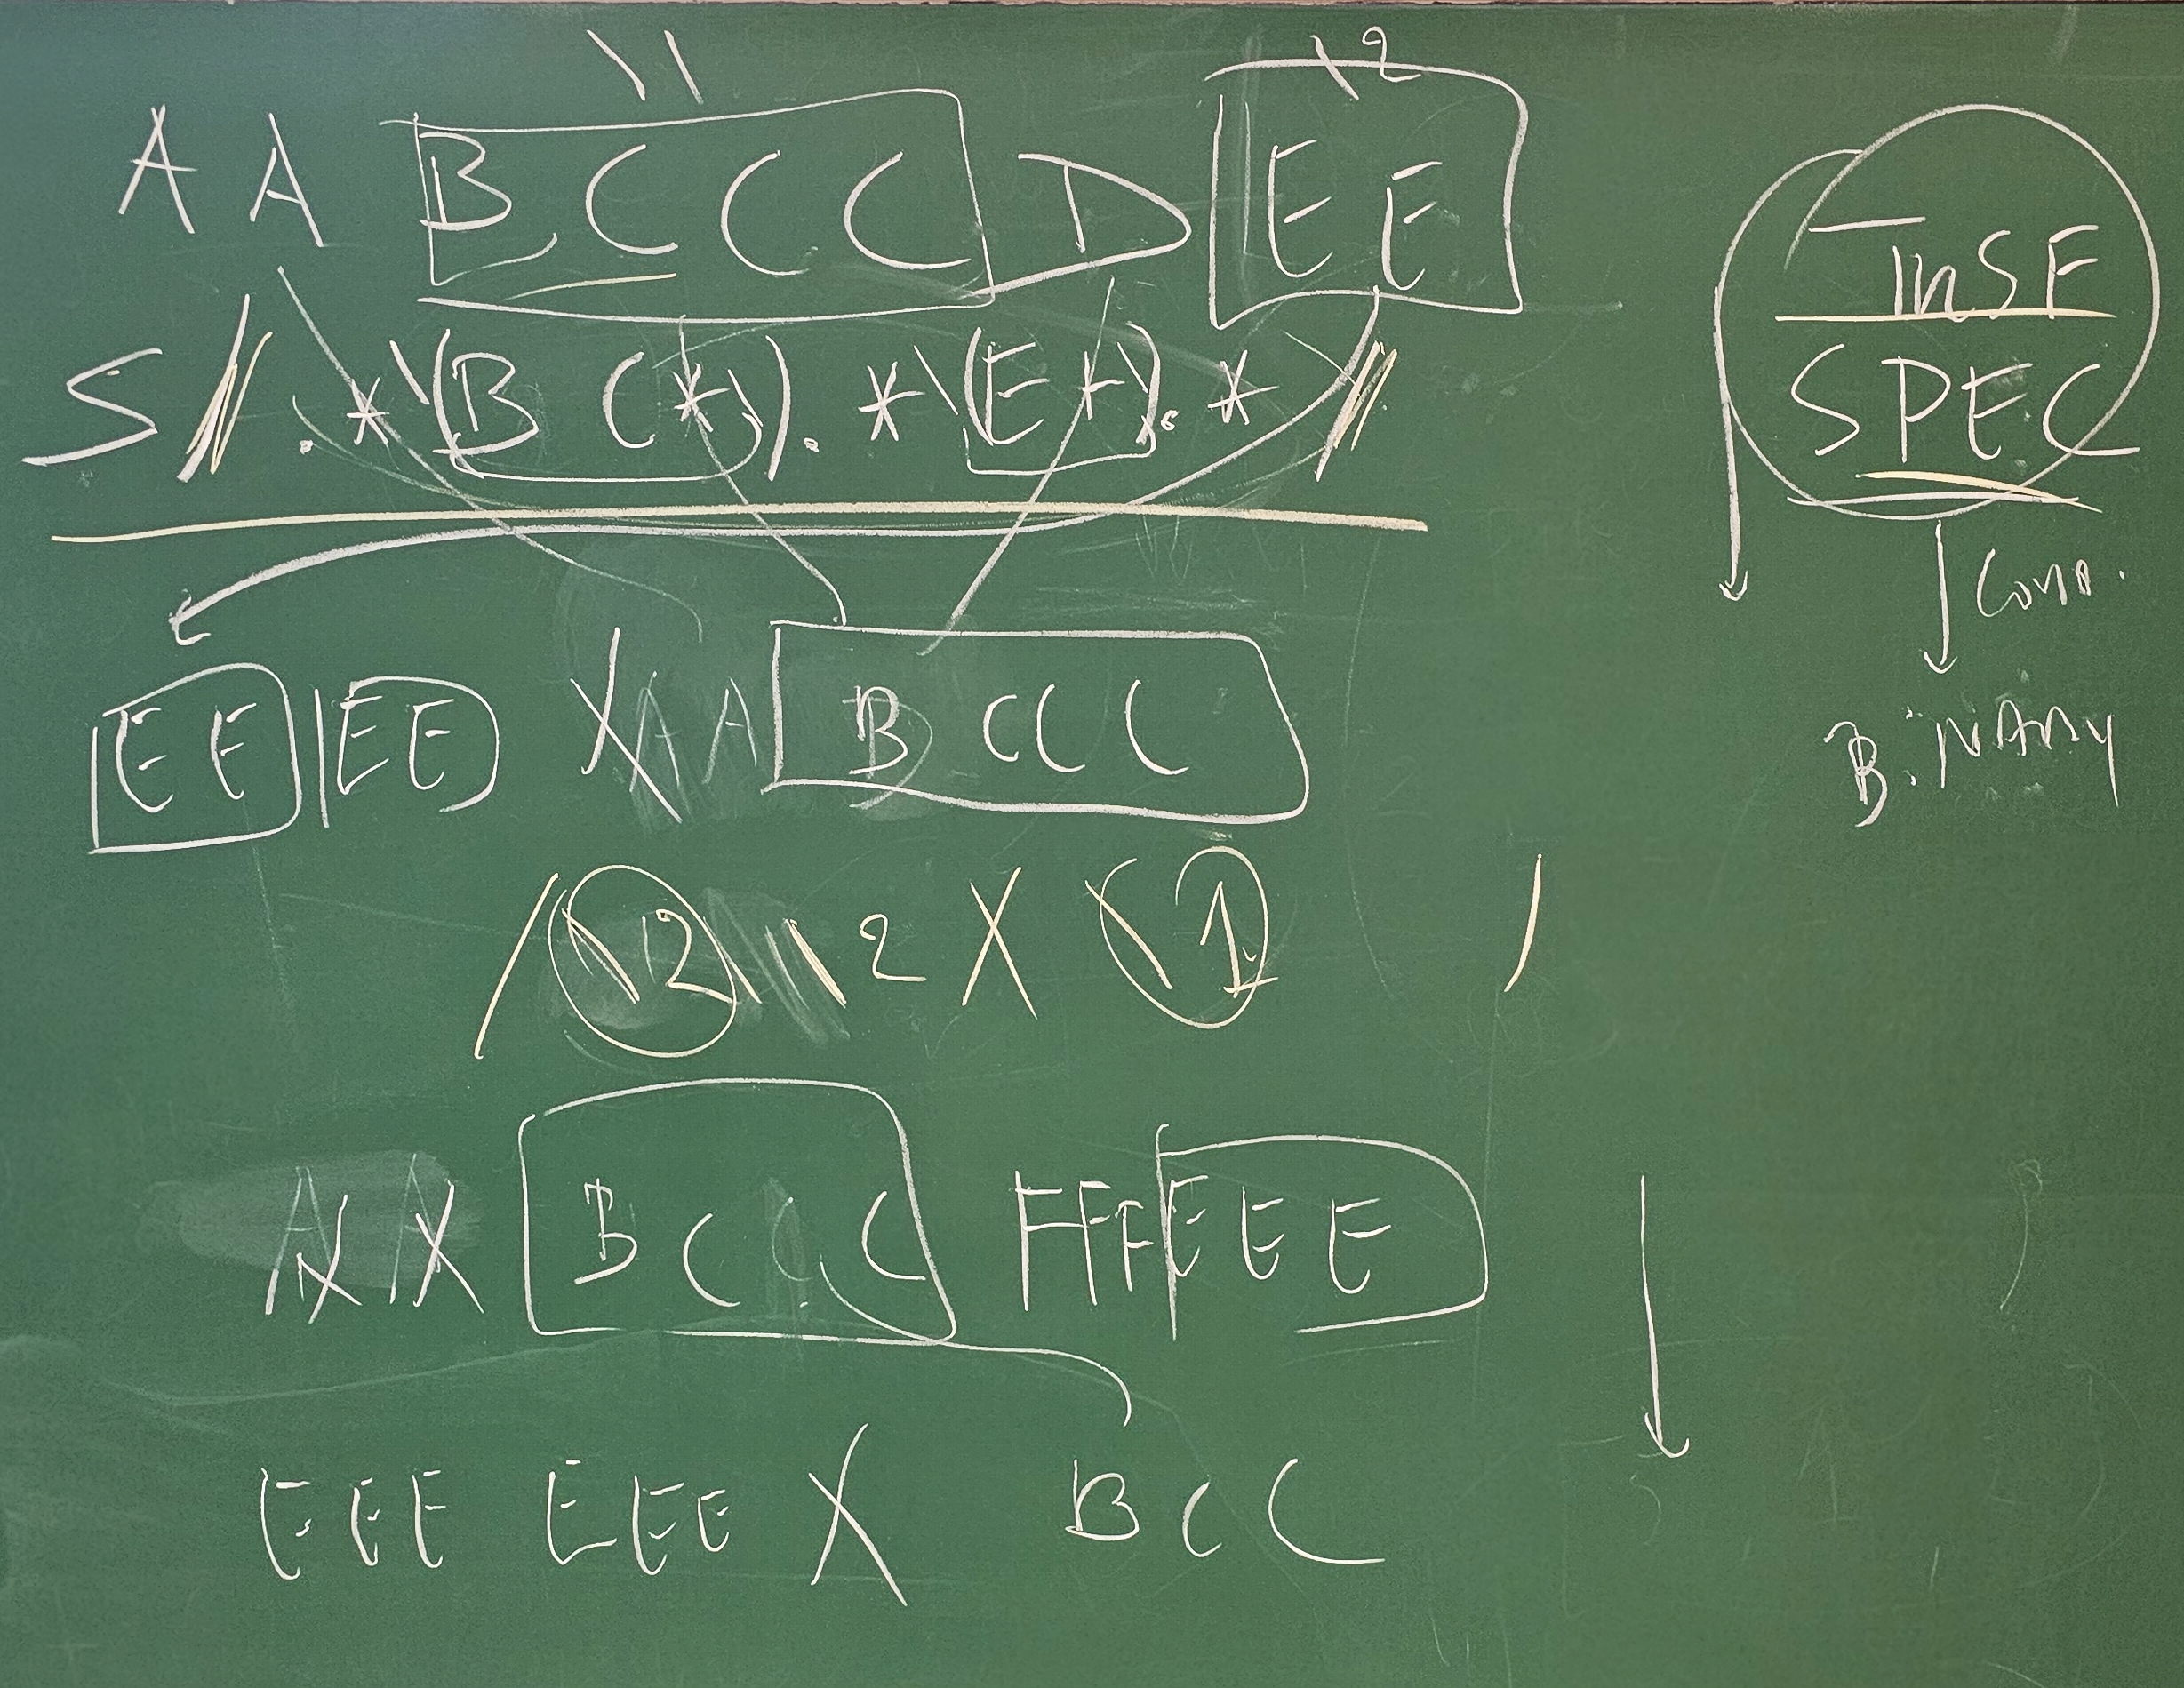 \1 \2
A A B C C C D E E
S/.*\(B C*\).*\(E*\).*/
E E E E X A B C C C
/\2 \2 X \1 /
X X B C C C F F F E E E
E E E E E E X B C C
SPEC
BiNARY